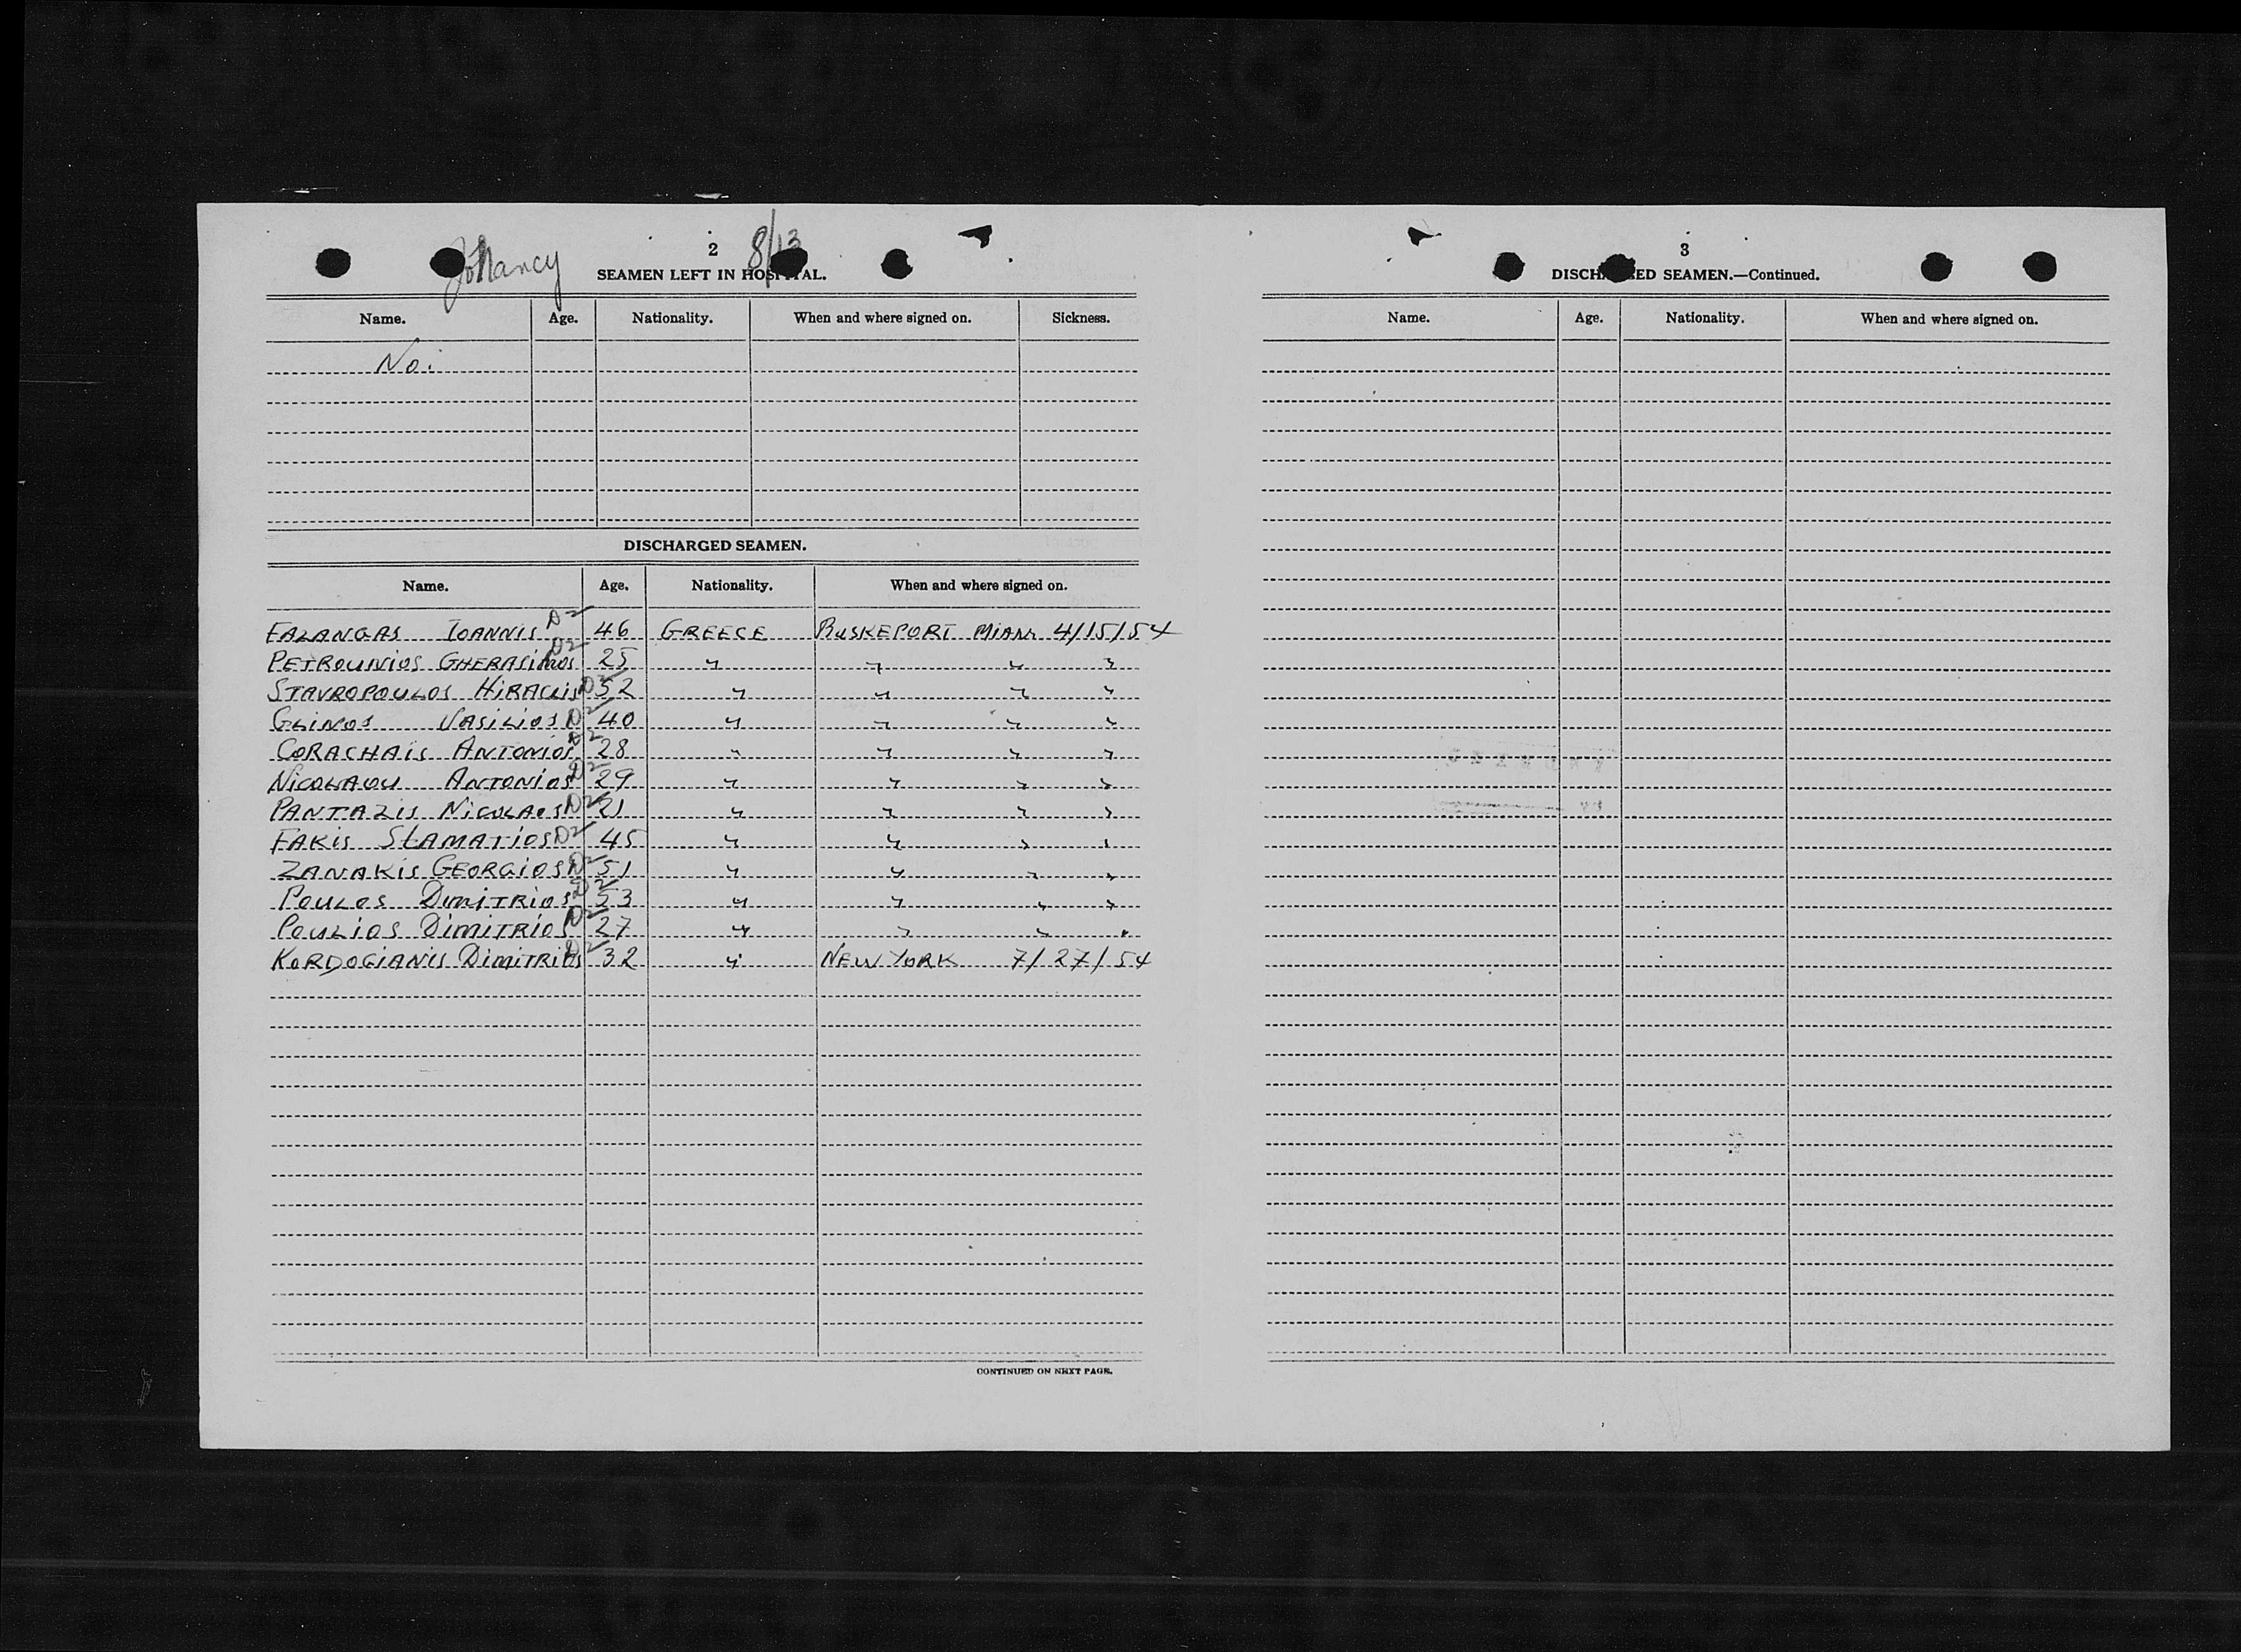 2 8/13
JoNancy
SEAMEN LEFT IN HOSPITAL.
Name. Age. Nationality. When and where signed on. Sickness.
No.
DISCHARGED SEAMEN.
Name. Age. Nationality. When and where signed on.
FALANGAS IOANNIS D2 46 GREECE BUSKEPORT MIAMI 4/15/54
PETROUNIOS GHERASIMOS D2 25 " " " "
STAVROPOULOS HIRACLIS D2 52 " " " "
GLINOS VASILIOS D2 40 " " " "
CORACHAIS ANTONIOS D2 28 " " " "
NICOLAOU ANTONIOS D2 29 " " " "
PANTAZIS NICOLAOS D2 21 " " " "
FAKIS STAMATIOS D2 45 " " " "
ZANAKIS GEORGIOS D2 51 " " " "
POULOS DIMITRIOS D2 53 " " " "
POULIOS DIMITRIOS D2 27 " " " "
KORDOGIANIS DIMITRIOS D2 32 " NEW YORK 7/27/54
CONTINUED ON NEXT PAGE.
3
DISCHARGED SEAMEN.—Continued.
Name. Age. Nationality. When and where signed on.